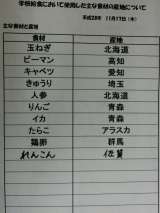 学校給食において使用した主な食材の産地について
平成28年 11月17日（木）
主な食材と産地
食材 産地
玉ねぎ 北海道
ピーマン 高知
キャベツ 愛知
きゅうり 埼玉
人参 北海道
りんご 青森
イカ 青森
たらこ アラスカ
鶏卵 群馬
れんこん 佐賀